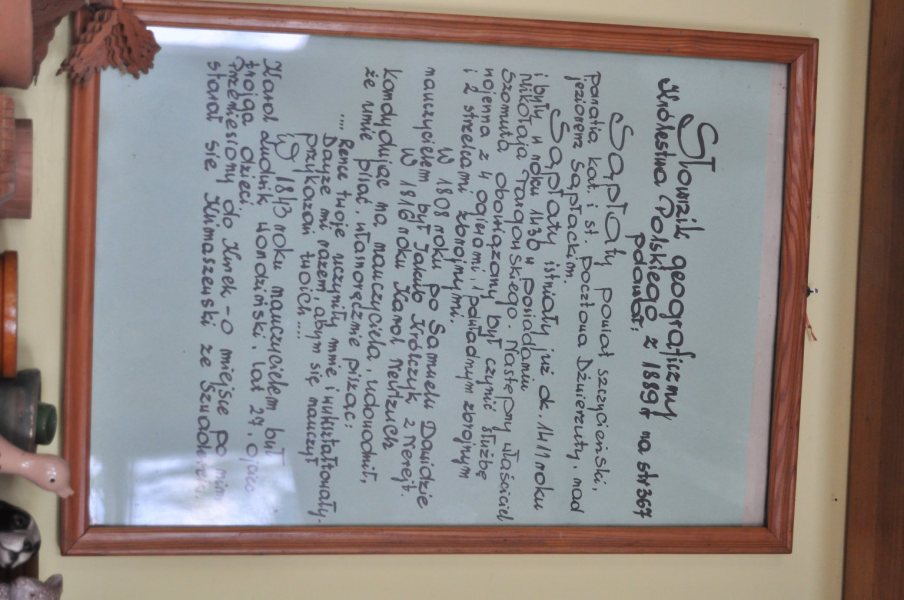 Słownik geograficzny
Królestwa Polskiego z 1889r na str 367
podawał:
Sąpłaty powiat szczycieński,
parafia kat. i st. pocztowa Dźwierzuty. nad
jeziorem Sąpłackim.
Sąpłaty istniały już ok. 1411 roku
i były w roku 1436 w posiadaniu
Mikołaja Targowskiego. Następny właściciel
Szomuta, obowiązany był czynić służbę
wojenną z 4 ogierami, 1 pokładnym zbrojnym
i 2 strzelcami zbrojnymi.
W 1808 roku po Samuelu Dawidzie
nauczycielem był Jakub Królczyk z Rerejt.
W 1816 roku Karol Nedzuch
kandydując na nauczyciela, udowodnił,
że umie pisać, własnoręcznie pisząc:
.... Ręce twoje uczyniły mnie i wykształtowały.
Dayże mi rozem, abym się nauczył
przykazań twoich....
W 1843 roku nauczycielem był
Karol Ludwik Wondziński. lat 27. ojciec
trojga dzieci.
Przeniesiony do Kurek - o miejsce po nim
starał się Klimaszewski ze